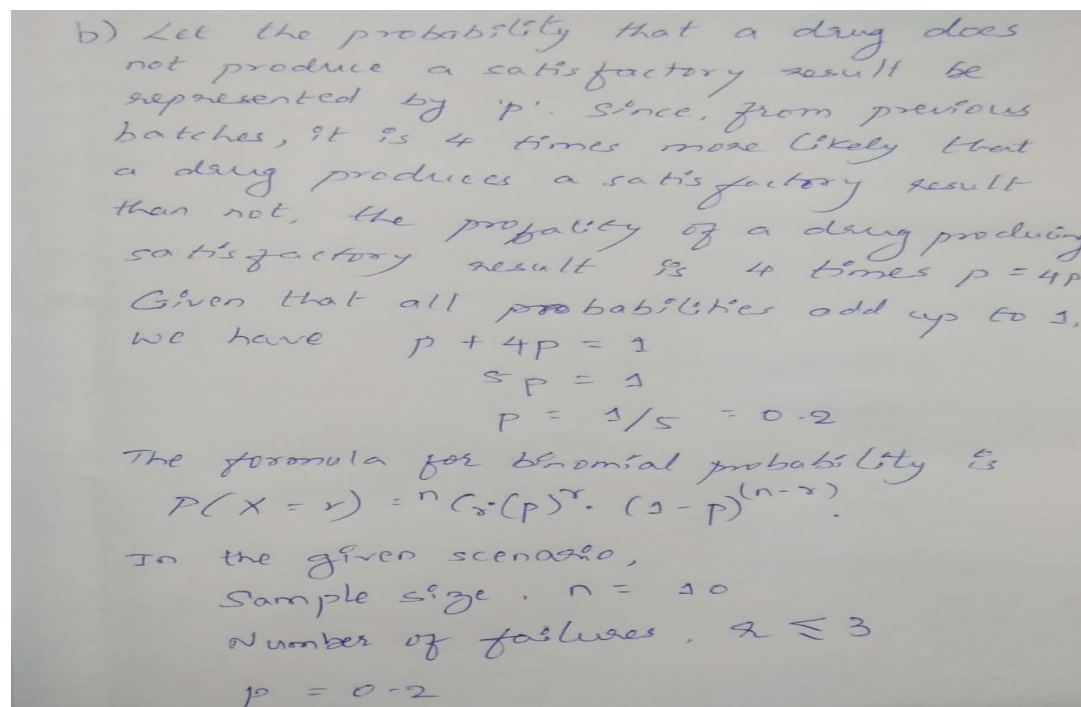 b) Let the probability that a drug does
not produce a satisfactory result be
represented by 'p'. Since, from previous
batches, it is 4 times more likely that
a drug produces a satisfactory result
than not, the propality of a drug producing
satisfactory result is 4 times p = 4p
Given that all probabilities add up to 1,
we have p + 4p = 1
5p = 1
p = 1/5 = 0.2
The formula for binomial probability is
P(X = r) = ⁿCᵣ·(p)ʳ. (1-p)⁽ⁿ⁻ʳ⁾.
In the given scenario,
Sample size, n = 10
Number of failures, r ≤ 3
p = 0.2